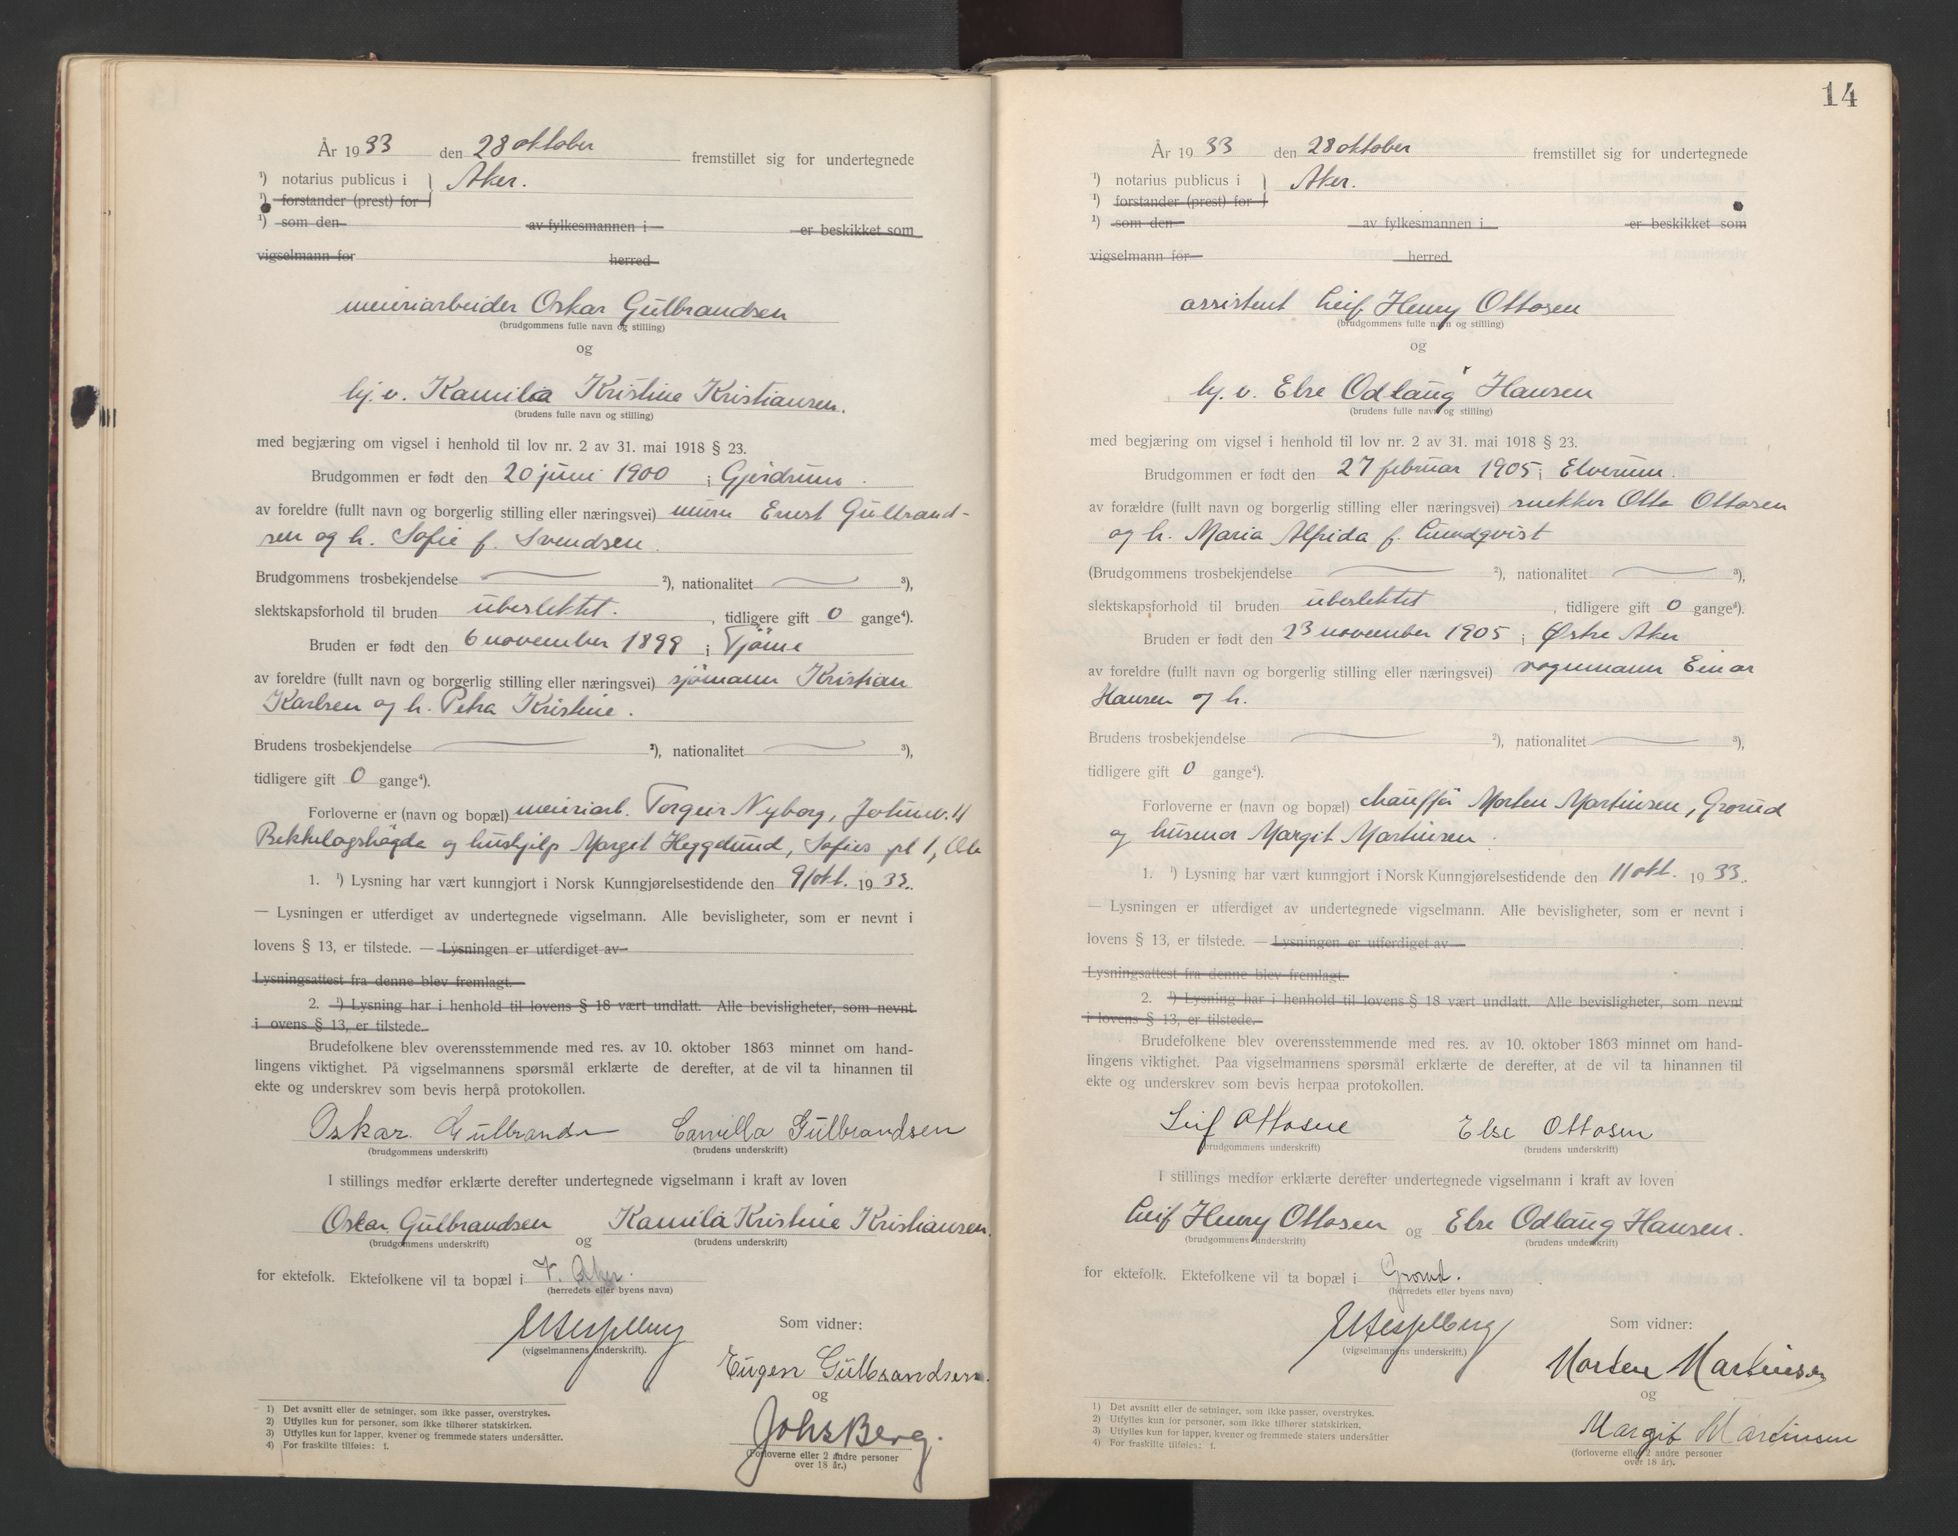 År 1933 den 28 oktober fremstillet sig for undertegnede
¹) notarius publicus i } Aker.
¹) forstander (prest) for }
¹) som den av fylkesmannen i er beskikket som
vigselmann for herred
meieriarbeider Oskar Gulbrandsen
(brudgommens fulle navn og stilling)
og
hj. v. Kamilla Kristine Kristiansen.
(brudens fulle navn og stilling)
med begjæring om vigsel i henhold til lov nr. 2 av 31. mai 1918 § 23.
Brudgommen er født den 20 juni 1900 i Gjerdrum.
av foreldre (fullt navn og borgerlig stilling eller næringsvei) murer Ernst Gulbrand-
sen og h. Sofie f. Svendsen.
Brudgommens trosbekjendelse ²), nationalitet ³),
slektskapsforhold til bruden ubeslektet. , tidligere gift 0 gange⁴).
Bruden er født den 6 november 1899 i Tjöme
av foreldre (fullt navn og borgerlig stilling eller næringsvei) sjömann Kristian
Karlsen og h. Petra Kristine.
Brudens trosbekjendelse ²), nationalitet ³),
tidligere gift 0 gange⁴).
Forloverne er (navn og bopæl) meieriarb. Torgeir Nyborg, 11
Bekkelagshøgda og hushjelp Margit Heggelund, Sofies pl 1,
1. ¹) Lysning har vært kunngjort i Norsk Kunngjørelsestidende den 9 okt. 1933.
— Lysningen er utferdiget av undertegnede vigselmann. Alle bevisligheter, som er nevnt i
lovens § 13, er tilstede. — Lysningen er utferdiget av
Lysningsattest fra denne blev fremlagt.
2. ¹) Lysning har i henhold til lovens § 18 vært undlatt. Alle bevisligheter, som nevnt
i ovens § 13, er tilstede.
Brudefolkene blev overensstemmende med res. av 10. oktober 1863 minnet om hand-
lingens viktighet. På vigselmannens spørsmål erklærte de derefter, at de vil ta hinannen til
ekte og underskrev som bevis herpå protokollen.
Oskar Gulbrandsen Camilla Gulbrandsen
(brudgommens underskrift) (brudens underskrift)
I stillings medfør erklærte derefter undertegnede vigselmann i kraft av loven
Oskar Gulbrandsen og Kamilla Kristine Kristiansen.
(brudgommens underskrift) (brudens underskrift)
for ektefolk. Ektefolkene vil ta bopæl i V. Aker.
(herredets eller byens navn)
(vigselmannens underskrift). Som vidner:
Eugen Gulbrandsen.
og
Johs Berg.
(Forloverne eller 2 andre personer
over 18 år.)
1) Det avsnitt eller de setninger, som ikke passer, overstrykes.
2) Utfylles kun for personer, som ikke tilhører statskirken.
3) Utfylles kun for lapper, kvener og fremmede staters undersåtter.
4) For fraskilte tilføies: f.
14
År 1933 den 28 oktober fremstillet sig for undertegnede
¹) notarius publicus i } Aker.
¹) forstander (prest) for }
¹) som den av fylkesmannen i er beskikket som
vigselmann for herred
assistent Leif Henry Ottosen
(brudgommens fulle navn og stilling)
og
hj. v. Else Odlaug Hansen
(brudens fulle navn og stilling)
med begjæring om vigsel i henhold til lov nr. 2 av 31. mai 1918 § 23.
Brudgommen er født den 27 februar 1905 i Elverum.
av forældre (fullt navn og borgerlig stilling eller næringsvei) snekker Otto Ottosen
og h. Maria Alfrida f. Lundqvist
(Brudgommens trosbekjendelse ²), nationalitet ³),
slektskapsforhold til bruden ubeslektet , tidligere gift 0 gange⁴).
Bruden er født den 23 november 1905 i Østre Aker
av foreldre (fullt navn og borgerlig stilling eller næringsvei) vognmann Einar
Hansen og h.
Brudens trosbekjendelse ²), nationalitet ³),
tidligere gift 0 gange⁴).
Forloverne er (navn og bopæl) chauffør Morten Martinsen, Grorud
og husmor Margit Martinsen.
1. ¹) Lysning har vært kunngjort i Norsk Kunngjørelsestidende den 11 okt. 1933.
— Lysningen er utferdiget av undertegnede vigselmann. Alle bevisligheter, som er nevnt i
lovens § 13, er tilstede. — Lysningen er utferdiget av
Lysningsattest fra denne blev fremlagt.
2. ¹) Lysning har i henhold til lovens § 18 vært undlatt. Alle bevisligheter, som nevnt
i lovens § 13, er tilstede.
Brudefolkene blev overensstemmende med res. av 10. oktober 1863 minnet om hand-
lingens viktighet. Paa vigselmannens spørsmål erklærte de derefter, at de vil ta hinannen til
ekte og underskrev som bevis herpaa protokollen.
Leif Ottosen Else Ottosen
(brudgommens underskrift) (brudens underskrift)
I stillings medfør erklærte derefter undertegnede vigselmann i kraft av loven
Leif Henry Ottosen og Else Odlaug Hansen.
(brudgommens underskrift) (brudens underskrift)
for ektefolk. Ektefolkene vil ta bopæl i Grorud.
(herredets eller byens navn)
(vigselmannens underskrift.) Som vidner:
Morten Martinsen
og
Margit Martinsen
(forloverne eller 2 andre personer
over 18 år).
1) Det avsnitt eller de setninger, som ikke passer, overstrykes.
2) Utfylles kun for personer, som ikke tilhører statskirken.
3) Utfylles kun for lapper, kvener og fremmede staters undersåtter
4) For fraskilte tilføies: f.